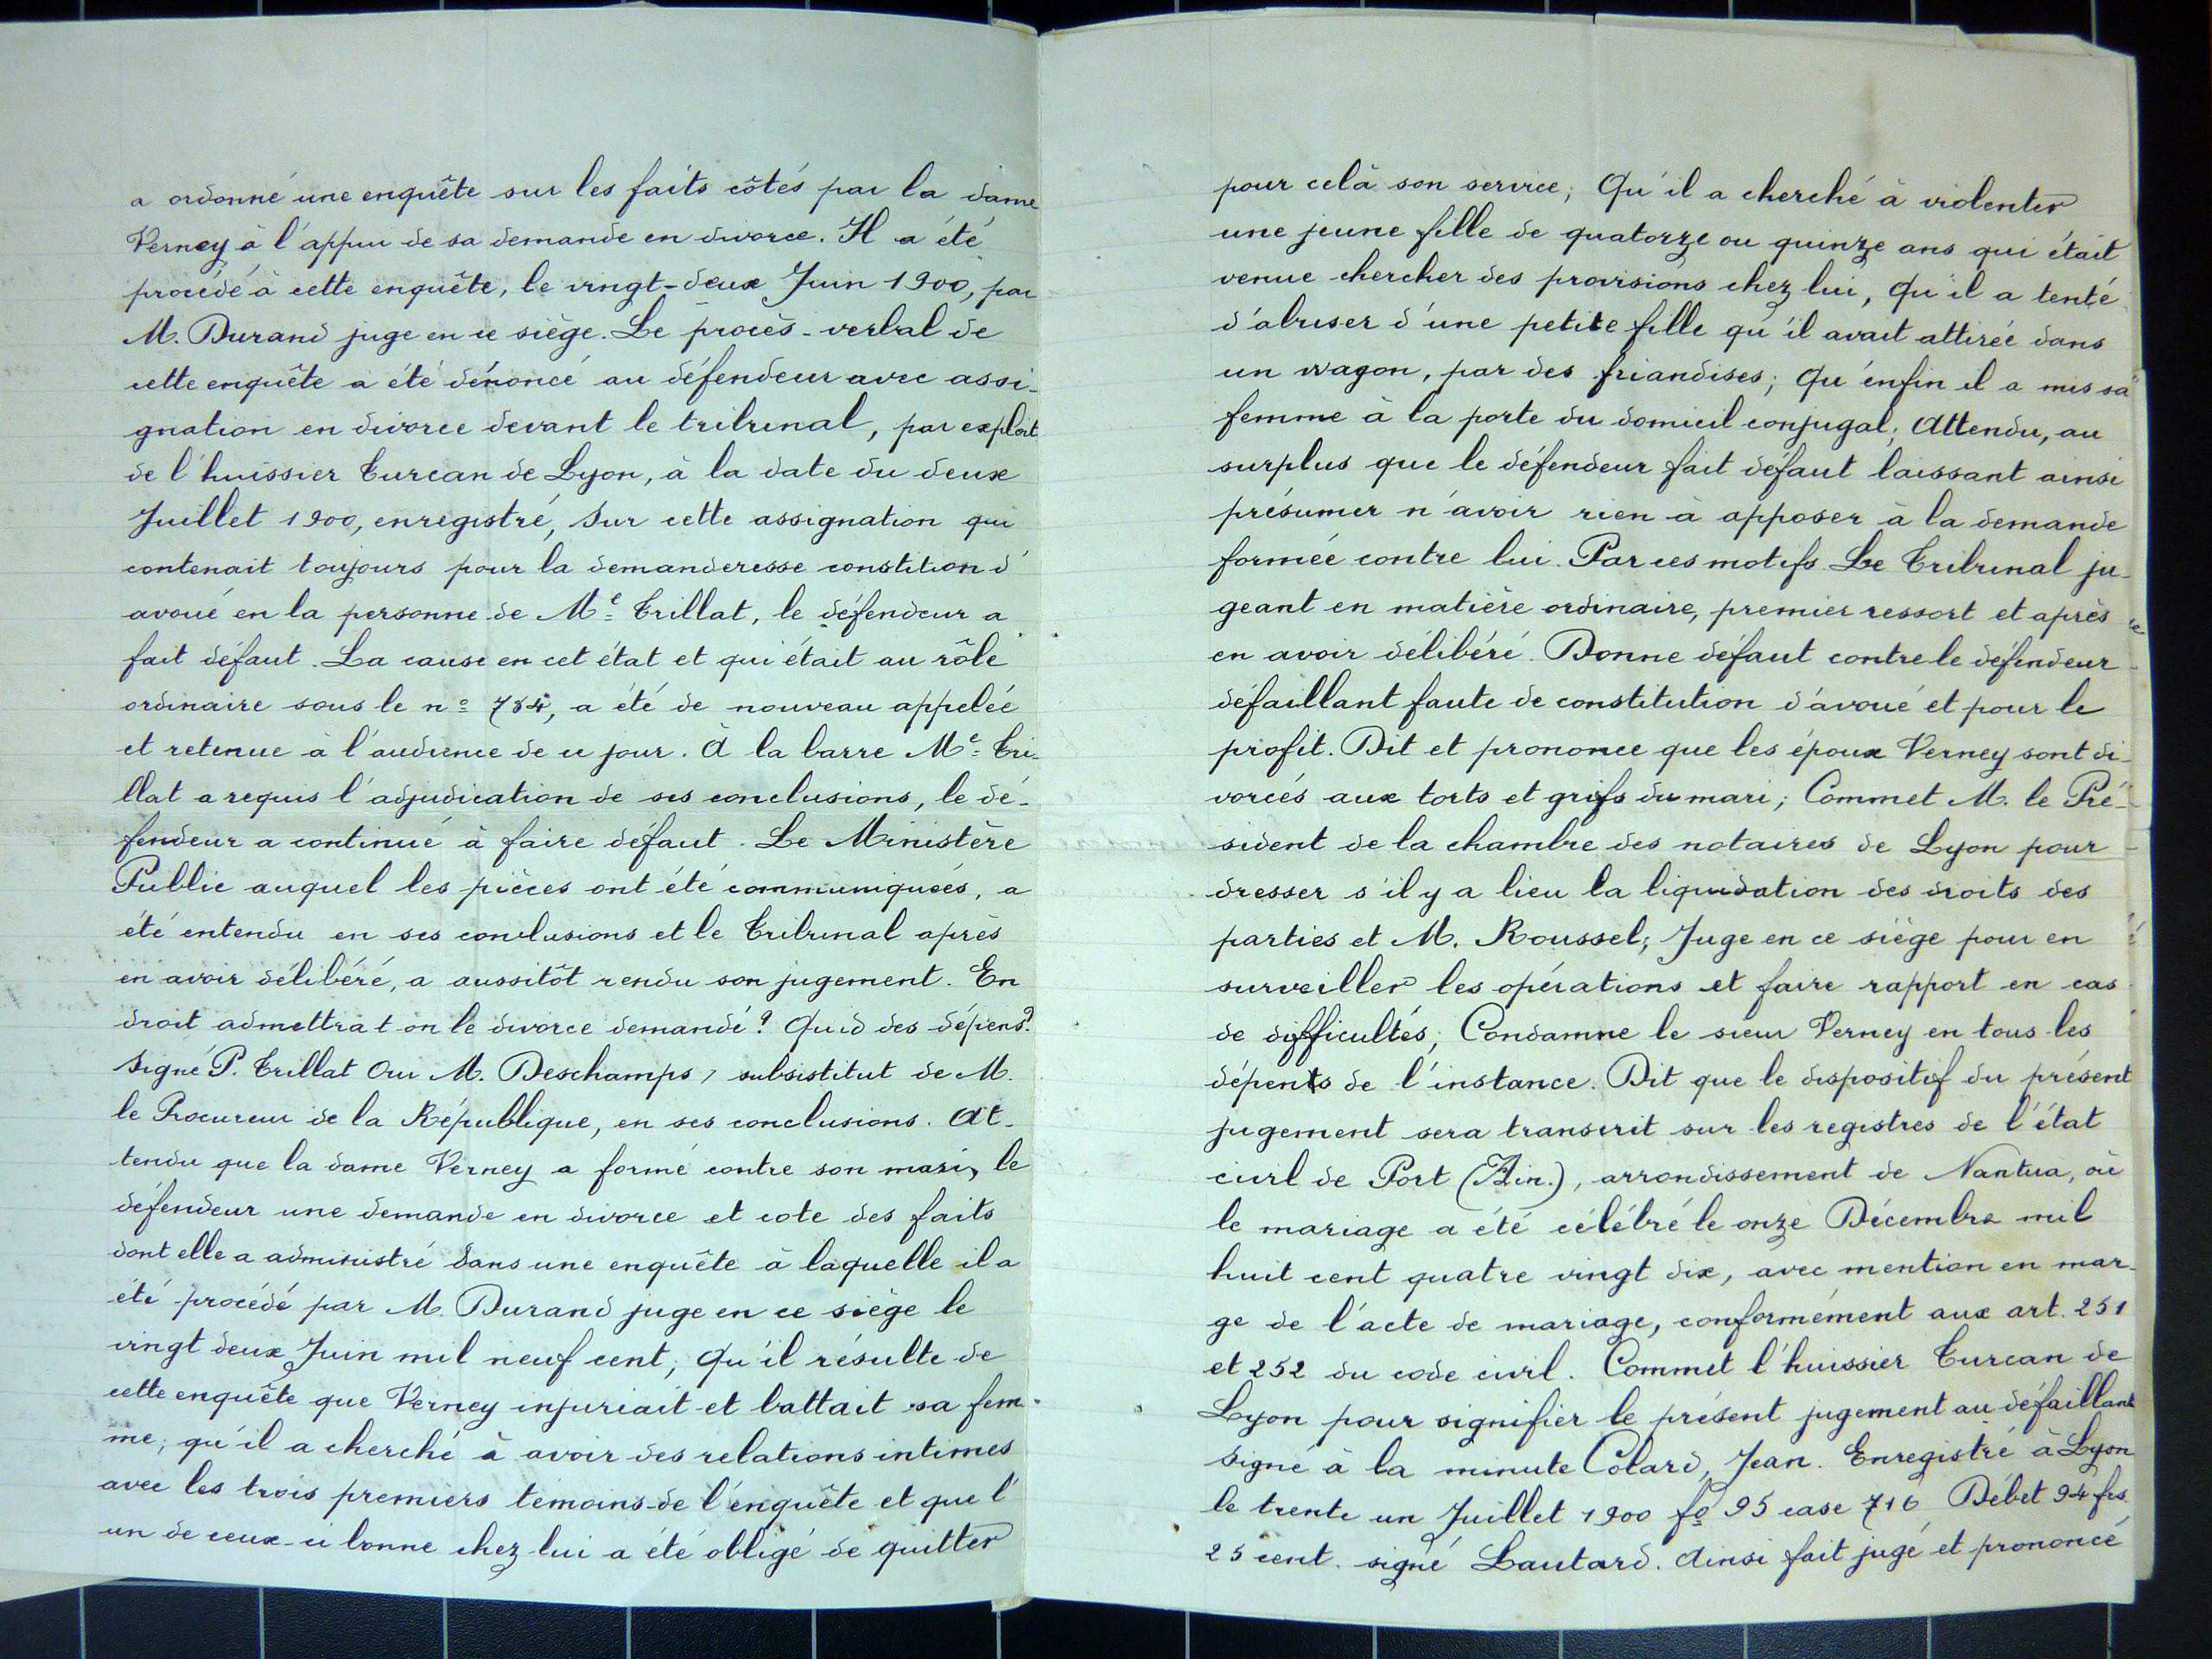 a ordonné une enquête sur les faits côtés par la dame
Verney à l'appui de sa demande en divorce. Il a été
procédé à cette enquête, le vingt-deux Juin 1900, par
M. Durand juge en ce siège. Le procès-verbal de
cette enquête a été dénoncé au défendeur avec assi-
gnation en divorce devant le tribunal, par exploit
de l'huissier Turcan de Lyon, à la date du deux
Juillet 1900, enregistré, Sur cette assignation qui
contenait toujours pour la demanderesse constition d'
avoué en la personne de Me Trillat, le défendeur a
fait défaut. La cause en cet état et qui était au rôle
ordinaire sous le no 784, a été de nouveau appelée
et retenue à l'audience de ce jour. A la barre Me Tri-
llat a requis l'adjudication de ses conclusions, le dé-
fendeur a continué à faire défaut. Le Ministère
Public auquel les pièces ont été communiquées, a
été entendu en ses conclusions et le Tribunal après
en avoir délibéré, a aussitôt rendu son jugement. En
droit admettra t on le divorce demandé? Quid des dépens?
Signé P. Trillat Oui M. Deschamps, subsistitut de M.
le Procureur de la République, en ses conclusions. At-
tendu que la dame Verney a formé contre son mari, le
défendeur une demande en divorce et cote des faits
dont elle a administré dans une enquête à laquelle il a
été procédé par M. Durand juge en ce siège le
vingt deux Juin mil neuf cent; Qu'il résulte de
cette enquête que Verney injuriait et battait sa fem-
me; qu'il a cherché à avoir des relations intimes
avec les trois premiers témoins de l'enquête et que l'
un de ceux-ci bonne chez lui a été obligé de quitter
pour celà son service; Qu'il a cherché à violenter
une jeune fille de quatorze ou quinze ans qui était
venue chercher des provisions chez lui, Qu'il a tenté
d'abuser d'une petite fille qu'il avait attirée dans
un wagon, par des friandises; Qu'enfin il a mis sa
femme à la porte du domicil conjugal; Attendu, au
surplus que le défendeur fait défaut laissant ainsi
présumer n'avoir rien à apposer à la demande
formée contre lui. Par ces motifs. Le Tribunal ju-
geant en matière ordinaire, premier ressort et après
en avoir délibéré. Donne défaut contre le défendeur
défaillant faute de constitution d'avoué et pour le
profit. Dit et prononce que les époux Verney sont di-
vorcés aux torts et griefs du mari; Commet M. le Pré-
sident de la chambre des notaires de Lyon pour
dresser s'il y a lieu la liquidation des droits des
parties et M. Roussel; Juge en ce siège pour en
surveiller les opérations et faire rapport en cas
de difficultés; Condamne le sieur Verney en tous les
dépents de l'instance. Dit que le dispositif du présent
jugement sera transcrit sur les registres de l'état
civil de Port (Ain.), arrondissement de Nantua, où
le mariage a été célébré le onze Décembre mil
huit cent quatre vingt dix, avec mention en mar-
ge de l'acte de mariage, conformément aux art. 251
et 252 du code civil. Commet l'huissier Turcan de
Lyon pour signifier le présent jugement au défaillant
signé à la minute Colard, Jean. Enregistré à Lyon
le trente un Juillet 1900 fo 95 case 716 Débet 94 frs
25 cent. signé Lautard. Ainsi fait jugé et prononcé